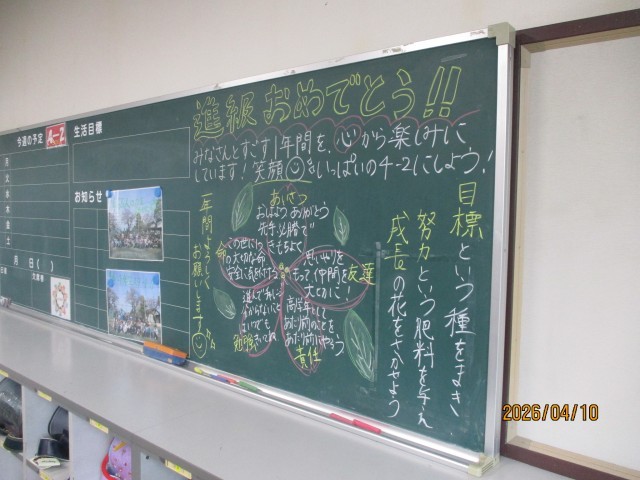 進級おめでとう!!
みなさんとすごす1年間を、心から楽しみに
しています！笑顔いっぱいの4-2にしよう！
今週の予定
4-2
生活目標
月
火
水
木
金
土
お知らせ
月 日( )
日直
欠席者
一年間よろしく
お願いします
あいさつ
おはよう ありがとう
先手必勝で
きもちよく
命
この世に1つ
の大切な命
安全に気を付ける
友達
思いやりを
もって仲間を
大切に！
進んで学ぶ
分からないこと
はいつでも
きいてね
勉強
高学年として
あたり前のことを
あたり前にやろう
責任
目標という種をまき
努力という肥料を与え
成長の花をさかせよう
2026/04/10